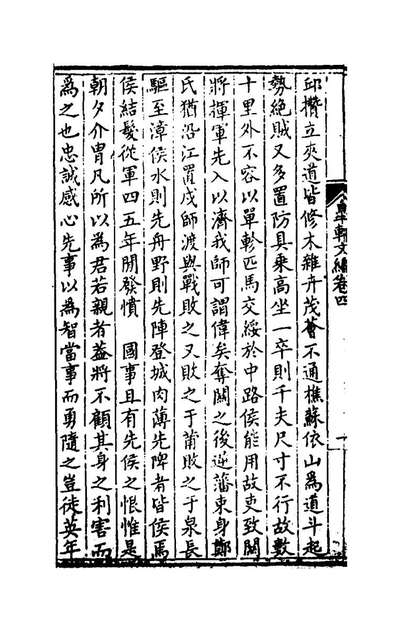 邱攢立夾道皆修木雜卉茂薈不通樵蘇依山為道斗起
勢絕賊又多置防具乘高坐一卒則千夫尺寸不行故數
十里外不容以單軫匹馬交綏於中路侯能用故吏致關
將揮軍先入以濟我師可謂偉矣奪關之後逆藩東身鄭
氏猶沿江置戍師渡與戰敗之又敗之于莆敗之于泉長
驅至漳侯水則先舟野則先陣登城肉薄先陴者皆侯焉
侯結髮從軍四五年間發憤　國事且有先侯之恨惟是
朝夕介胄凡所以為君若親者葢將不顧其身之利害而
為之也忠誠感心先事以為智當事而勇隨之豈徒英年
軒文編卷四